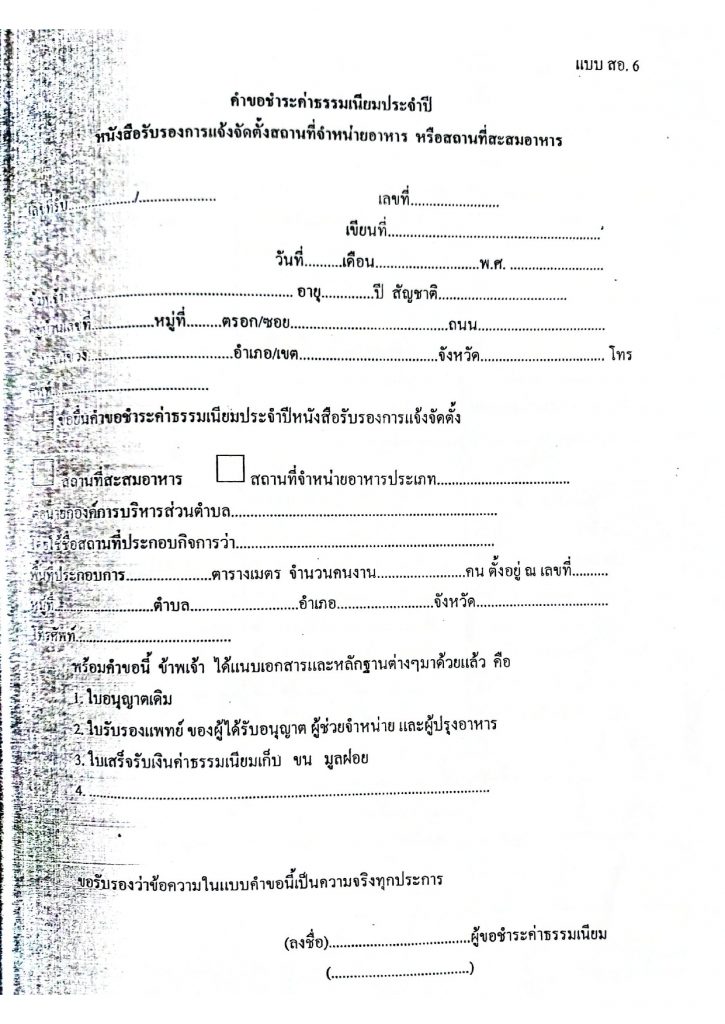 แบบ สอ. 6
คำขอชำระค่าธรรมเนียมประจำปี
หนังสือรับรองการแจ้งจัดตั้งสถานที่จำหน่ายอาหาร หรือสถานที่สะสมอาหาร
เลขที่รับ................/.................... เลขที่.......................
เขียนที่.......................................................
วันที่..........เดือน...........................พ.ศ. ........................
ข้าพเจ้า........................................................... อายุ.............ปี สัญชาติ.................................
อยู่บ้านเลขที่................หมู่ที่.........ตรอก/ซอย.........................................ถนน.................................
.....................................อำเภอ/เขต....................................จังหวัด................................ โทร
.......................................
ขอยื่นคำขอชำระค่าธรรมเนียมประจำปีหนังสือรับรองการแจ้งจัดตั้ง
สถานที่สะสมอาหาร สถานที่จำหน่ายอาหารประเภท..................................
ต่อนายกองค์การบริหารส่วนตำบล.....................................................................
โดยใช้ชื่อสถานที่ประกอบกิจการว่า...................................................................
พื้นที่ประกอบการ......................ตารางเมตร จำนวนคนงาน.......................คน ตั้งอยู่ ณ เลขที่..........
หมู่ที่.........................ตำบล............................อำเภอ.........................จังหวัด..................................
โทรศัพท์.......................................
พร้อมคำขอนี้ ข้าพเจ้า ได้แนบเอกสารและหลักฐานต่างๆมาด้วยแล้ว คือ
1. ใบอนุญาตเดิม
2. ใบรับรองแพทย์ ของผู้ได้รับอนุญาต ผู้ช่วยจำหน่าย และผู้ปรุงอาหาร
3. ใบเสร็จรับเงินค่าธรรมเนียมเก็บ ขน มูลฝอย
4. .......................................................................................................
ขอรับรองว่าข้อความในแบบคำขอนี้เป็นความจริงทุกประการ
(ลงชื่อ).....................................ผู้ขอชำระค่าธรรมเนียม
(....................................)